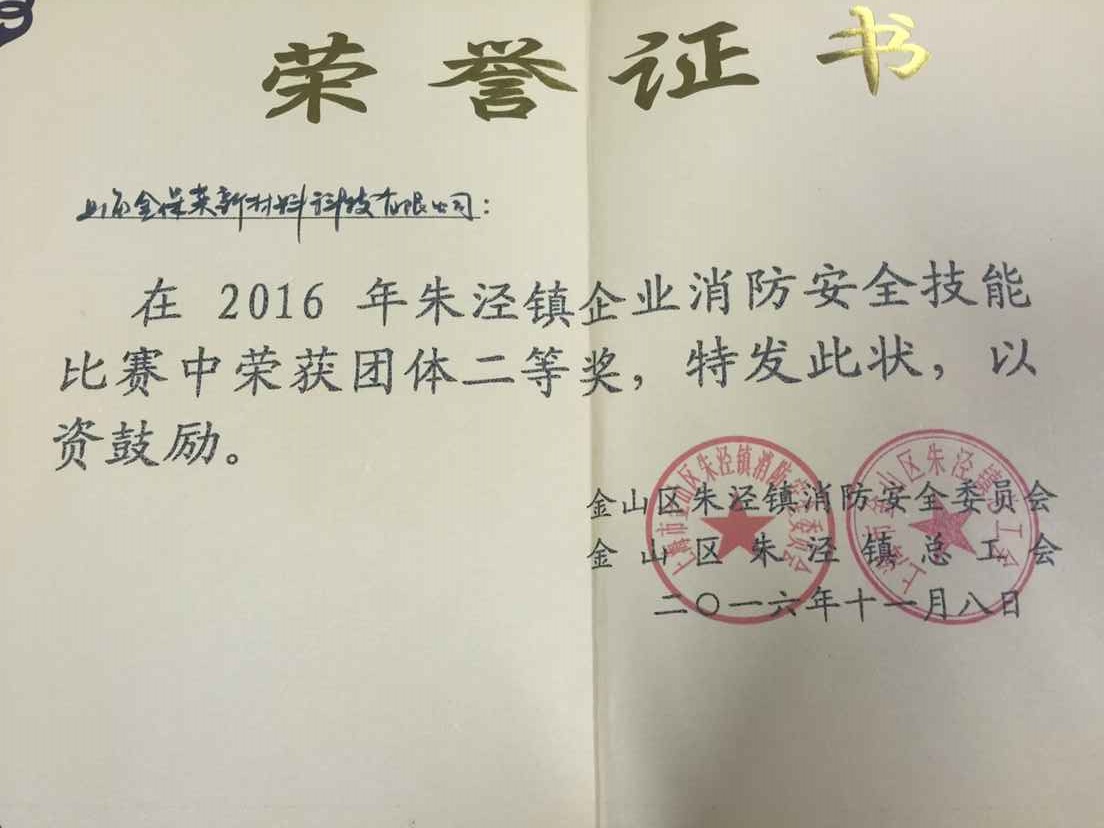 荣誉证书
上海金保莱新材料科技有限公司：
在 2016 年朱泾镇企业消防安全技能
比赛中荣获团体二等奖，特发此状，以
资鼓励。
金山区朱泾镇消防安全委员会
金山区朱泾镇总工会
二〇一六年十一月八日
上海市金山区朱泾镇消防安全委员会
上海市金山区朱泾镇总工会